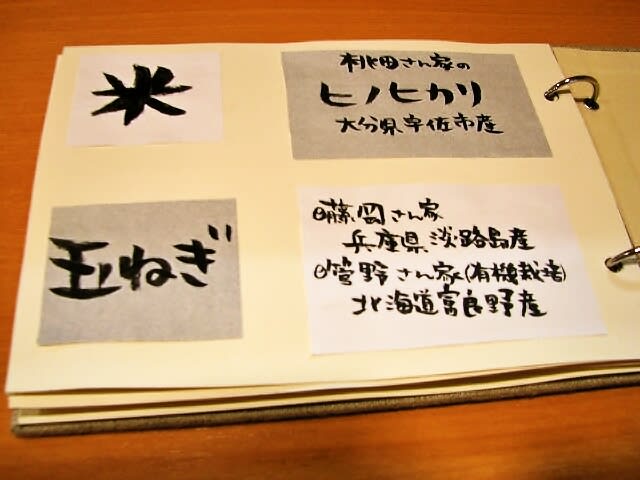 米
桃田さん家の
ヒノヒカリ
大分県宇佐市産
玉ねぎ
藤岡さん家
兵庫県淡路島産
菅野さん家(有機栽培)
北海道富良野産